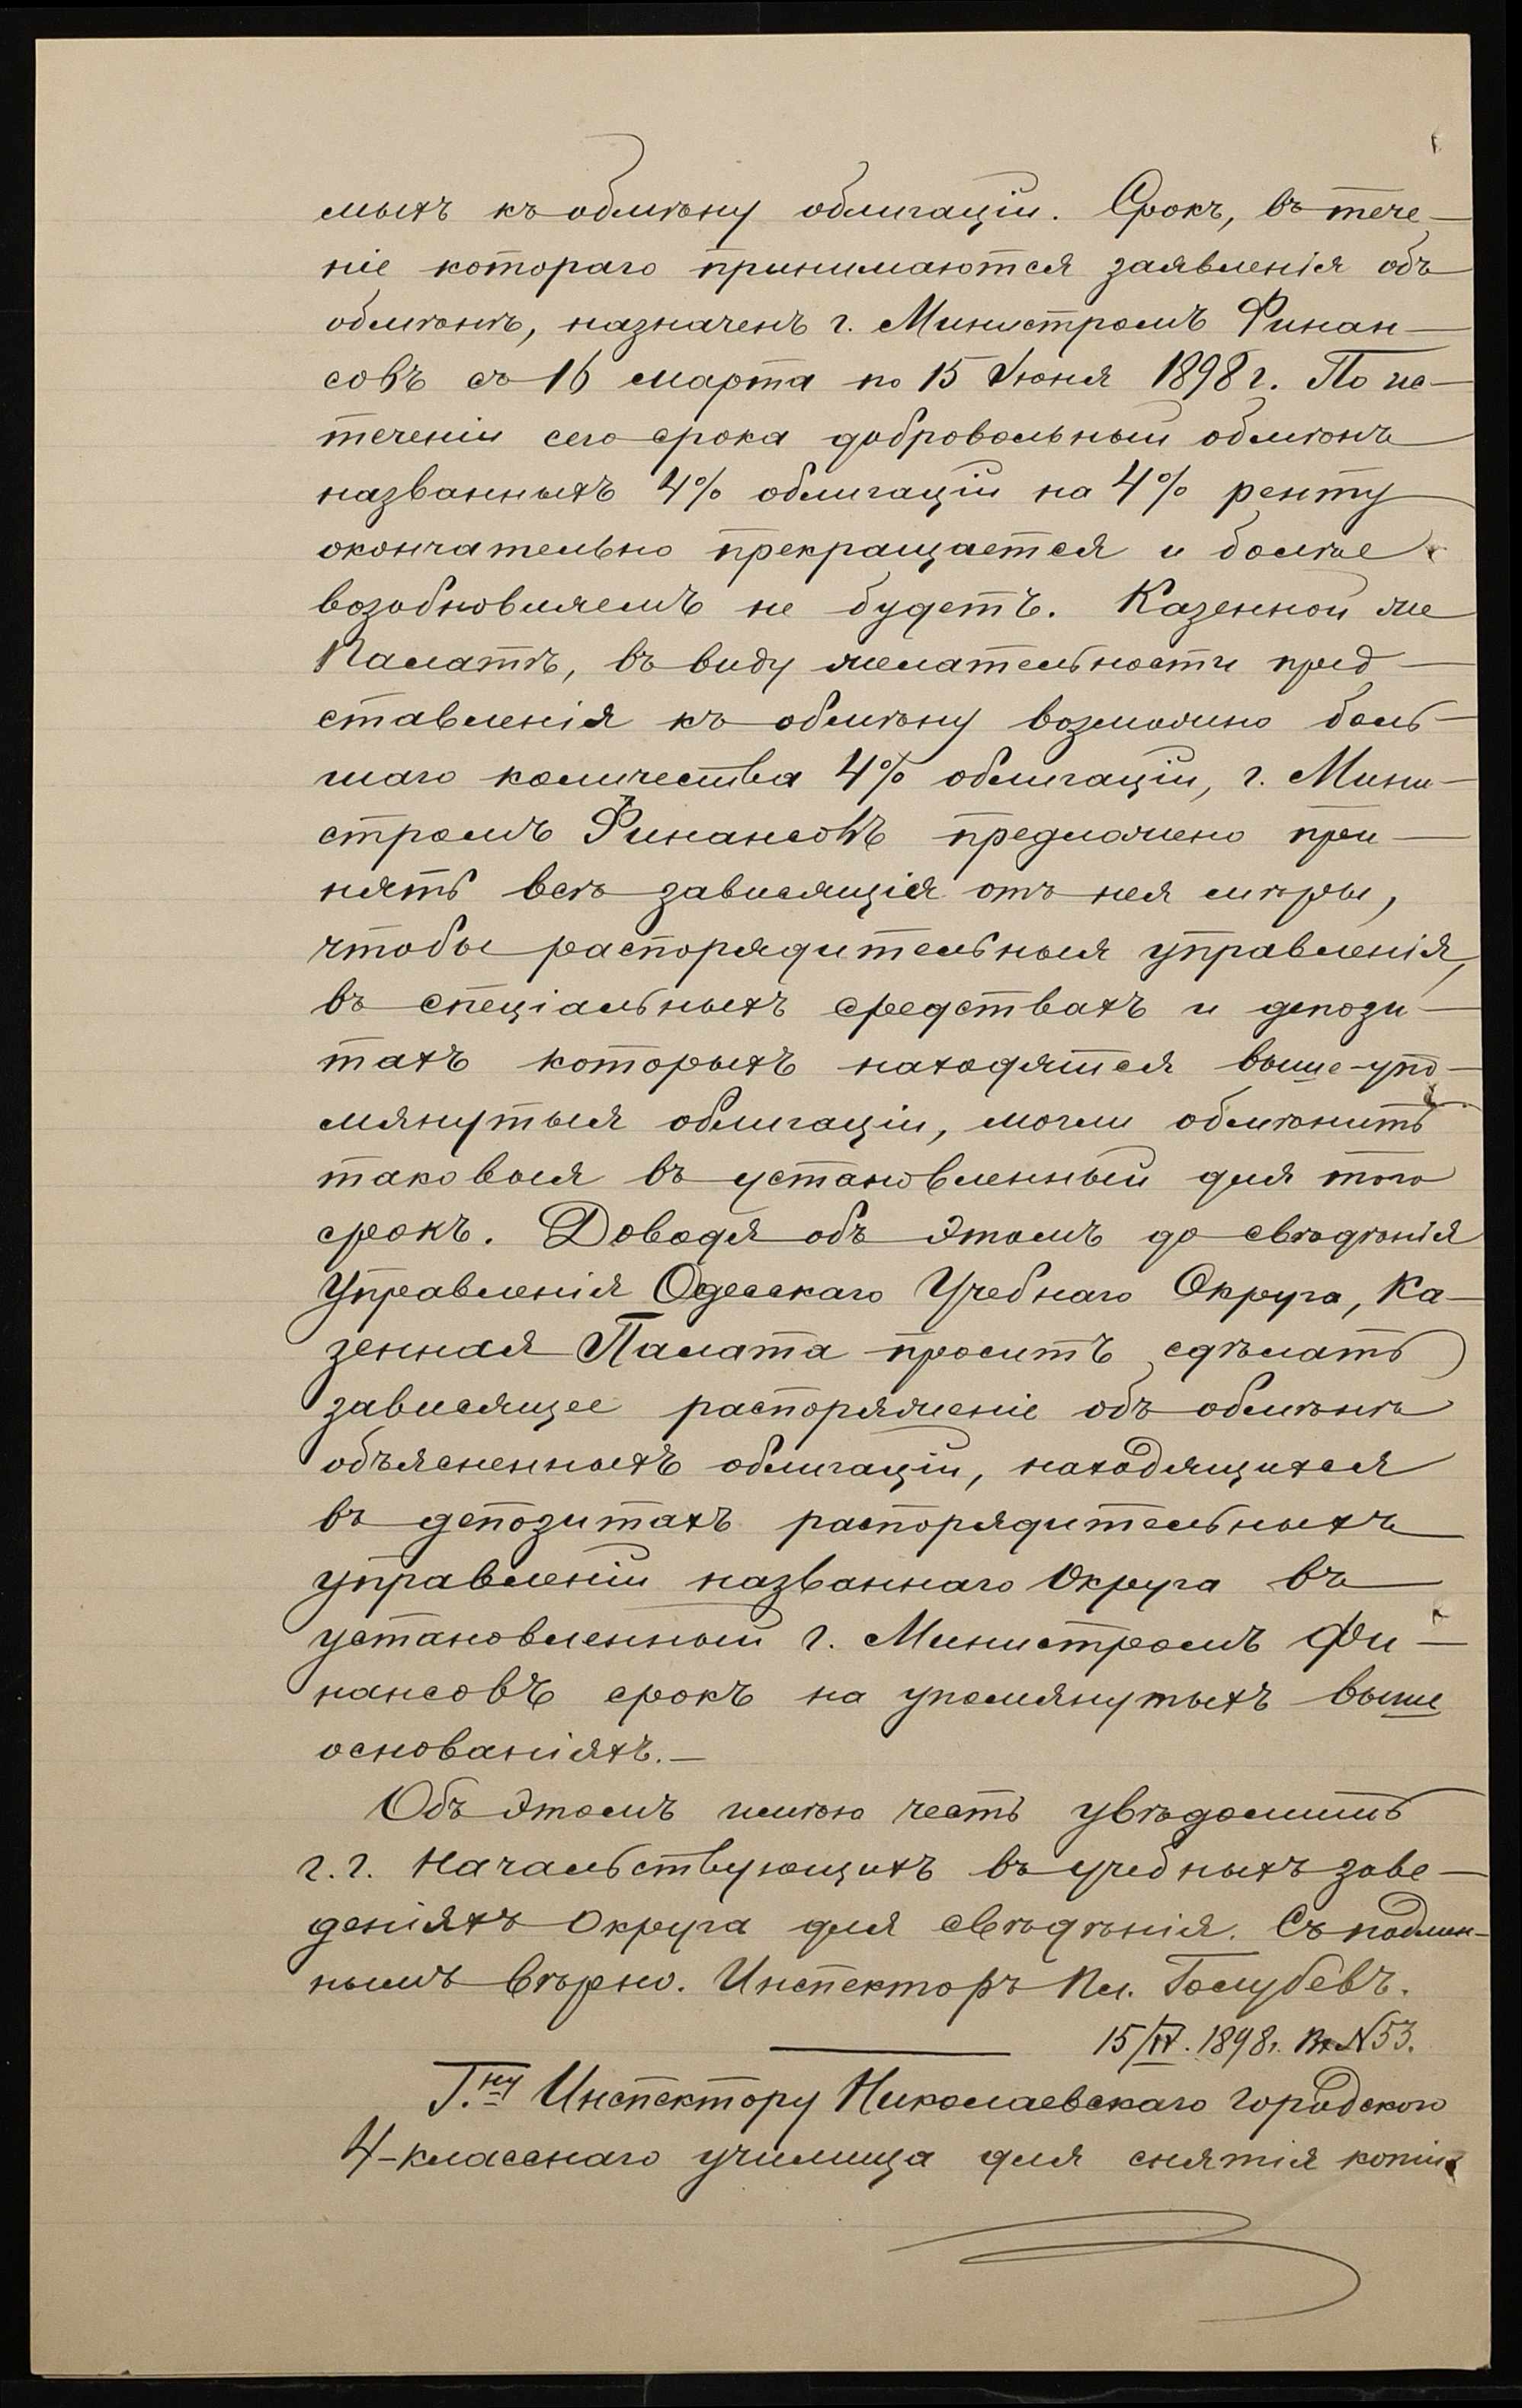 мыхъ къ обмѣну облигацій. Срокъ, въ тече-
ніе котораго принимаются заявленія объ
обмѣнѣ, назначенъ г. Министромъ Финан-
совъ съ 16 марта по 15 Іюня 1898 г. По ис-
теченіи сего срока добровольный обмѣнъ
названныхъ 4% облигацій на 4% ренту
окончательно прекращается и болѣе
возобновляемъ не будетъ. Казенной же
Палатѣ, въ виду желательности пред-
ставленія къ обмѣну возможно боль-
шаго количества 4% облигацій, г. Мини-
стромъ Финансовъ предложено при-
нять всѣ зависящія отъ нея мѣры,
чтобы распорядительныя управленія,
въ спеціальныхъ средствахъ и депози-
тахъ которыхъ находятся выше-упо-
мянутыя облигаціи, могли обмѣнить
таковыя въ установленный для того
срокъ. Доводя объ этомъ до свѣдѣнія
Управленія Одесскаго Учебнаго Округа, Ка-
зенная Палата проситъ сдѣлать
зависящее распоряженіе объ обмѣнѣ
объясненныхъ облигацій, находящихся
въ депозитахъ распорядительныхъ
управленій названнаго Округа въ
установленный г. Министромъ Фи-
нансовъ срокъ на упомянутыхъ выше
основаніяхъ.—
Объ этомъ имѣю честь увѣдомить
г.г. Начальствующихъ въ учебныхъ заве-
деніяхъ Округа для свѣдѣнія. Съ подлин-
нымъ вѣрно. Инспекторъ Пл. Голубевъ.
15/IV. 1898г. № 53.
Г.ну Инспектору Николаевскаго городского
4-класснаго училища для снятія копіи